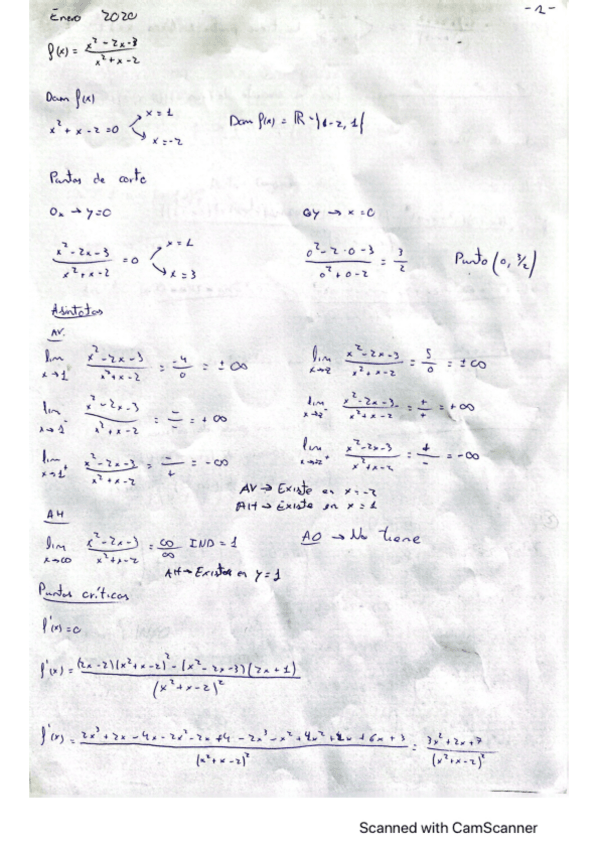 Enero 2020
-1-
f(x) = x² - 2x - 3 / x² + x - 2
Dom f(x)
x² + x - 2 = 0 → x = 1 → x = -2 Dom f(x) = ℝ - {-2, 1}
Puntos de corte
Ox → y = 0 OY → x = 0
x² - 2x - 3 / x² + x - 2 = 0 → x = 1 → x = 3 0² - 2·0 - 3 / 0² + 0 - 2 = 3/2 Punto (0, 3/2)
Asíntotas
AV.
lim x→1 x² - 2x - 3 / x² + x - 2 = -4/0 = ±∞ lim x→-2 x² - 2x - 3 / x² + x - 2 = 5/0 = ±∞
lim x→1⁻ x² - 2x - 3 / x² + x - 2 = -/- = +∞ lim x→-2⁻ x² - 2x - 3 / x² + x - 2 = +/+ = +∞
lim x→1⁺ x² - 2x - 3 / x² + x - 2 = -/+ = -∞ lim x→-2⁺ x² - 2x - 3 / x² + x - 2 = +/- = -∞
AV → Existe en x = -2
AH → Existe en x = 1
AH
lim x→∞ x² - 2x - 3 / x² + x - 2 = ∞/∞ IND = 1 AO → No tiene
AH → Existe en y = 1
Puntos críticos
f'(x) = 0
f'(x) = (2x - 2)(x² + x - 2) - (x² - 2x - 3)(2x + 1) / (x² + x - 2)²
f'(x) = 2x³ + 2x - 4x - 2x² - 2x + 4 - 2x³ - x² + 4x² + 2x + 6x + 3 / (x² + x - 2)² = 3x² + 2x + 7 / (x² + x - 2)²
Scanned with CamScanner